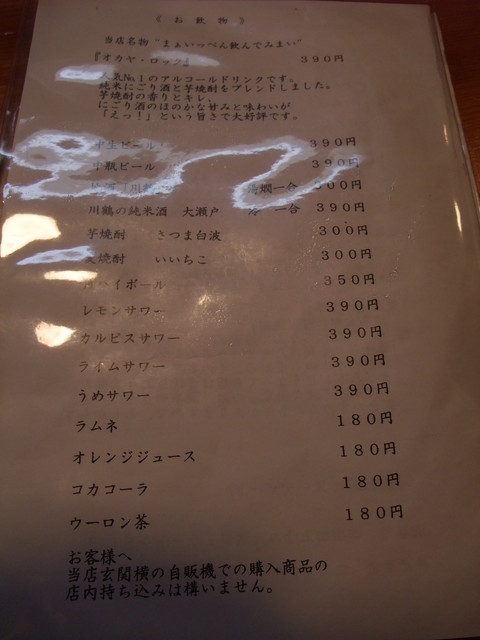 《お飲物》
当店名物 "まぁいっぺん飲んでみまい"
『オカヤ・ロック』 390円
人気№1のアルコールドリンクです。
純米にごり酒と芋焼酎をブレンドしました。
芋焼酎の香りとキレ、
にごり酒のほのかな甘みと味わいが
「えっ！」という旨さで大好評です。
中生ビール 390円
小瓶ビール 390円
燗一合 300円
川鶴の純米酒 大瀬戸 冷 一合 390円
芋焼酎 さつま白波 300円
麦焼酎 いいちこ 300円
ハイボール 350円
レモンサワー 390円
カルピスサワー 390円
ライムサワー 390円
うめサワー 390円
ラムネ 180円
オレンジジュース 180円
コカコーラ 180円
ウーロン茶 180円
お客様へ
当店玄関横の自販機での購入商品の
店内持ち込みは構いません。